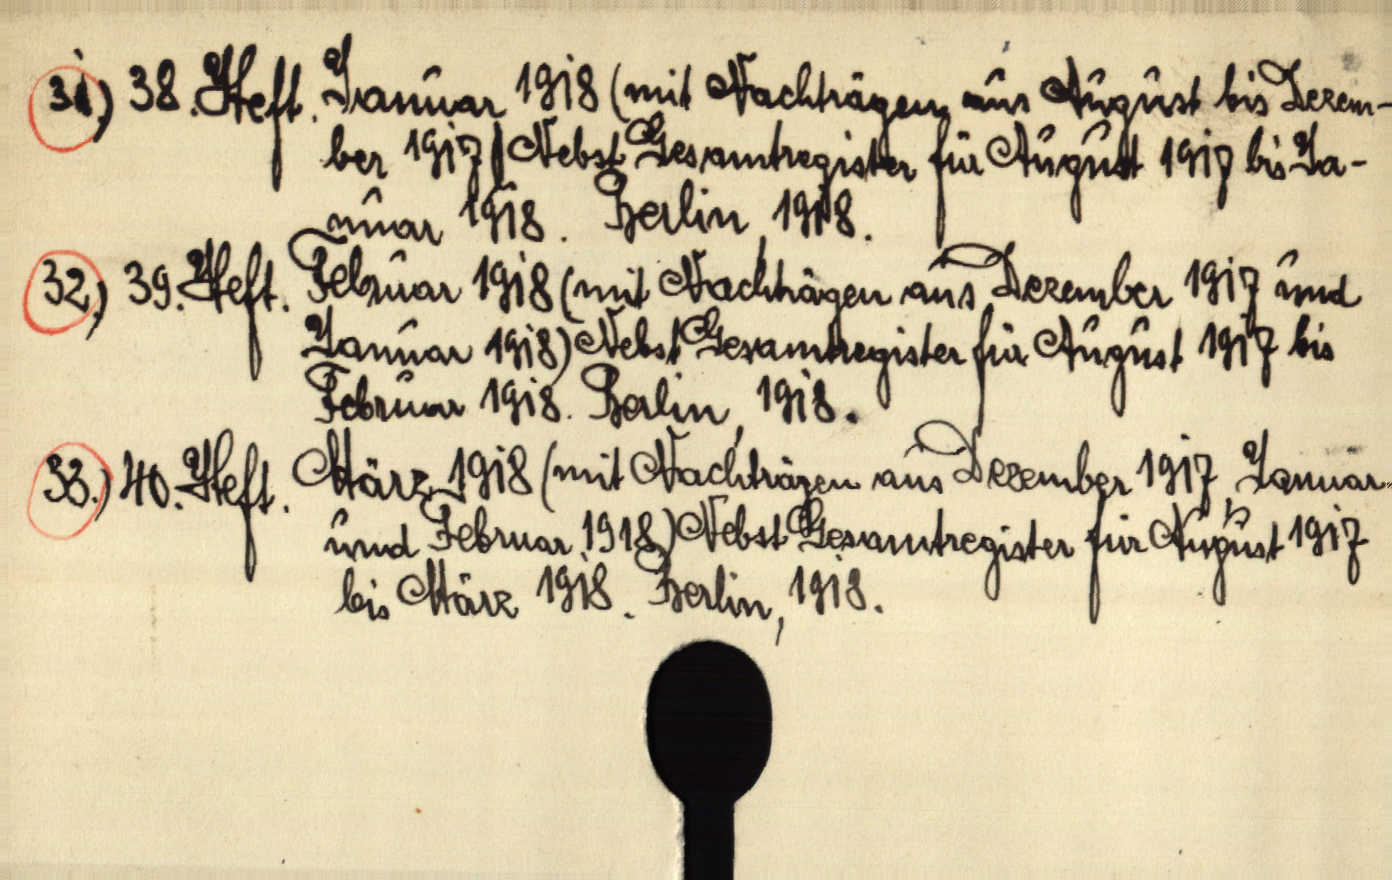 31.) 38. Heft. Januar 1918 (mit Nachträgen aus August bis Dezem-
ber 1917) Nebst Gesamtregister für August 1917 bis Ja-
nuar 1918. Berlin, 1918.
32.) 39. Heft. Februar 1918 (mit Nachträgen aus Dezember 1917 und
Januar 1918) Nebst Gesamtregister für August 1917 bis
Februar 1918. Berlin, 1918.
33.) 40. Heft. März 1918 (mit Nachträgen aus Dezember 1917, Januar
und Februar 1918) Nebst Gesamtregister für August 1917
bis März 1918. Berlin, 1918.